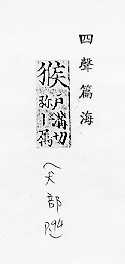 四聲篇海
猴
戶溝切
(犬部 P.94)